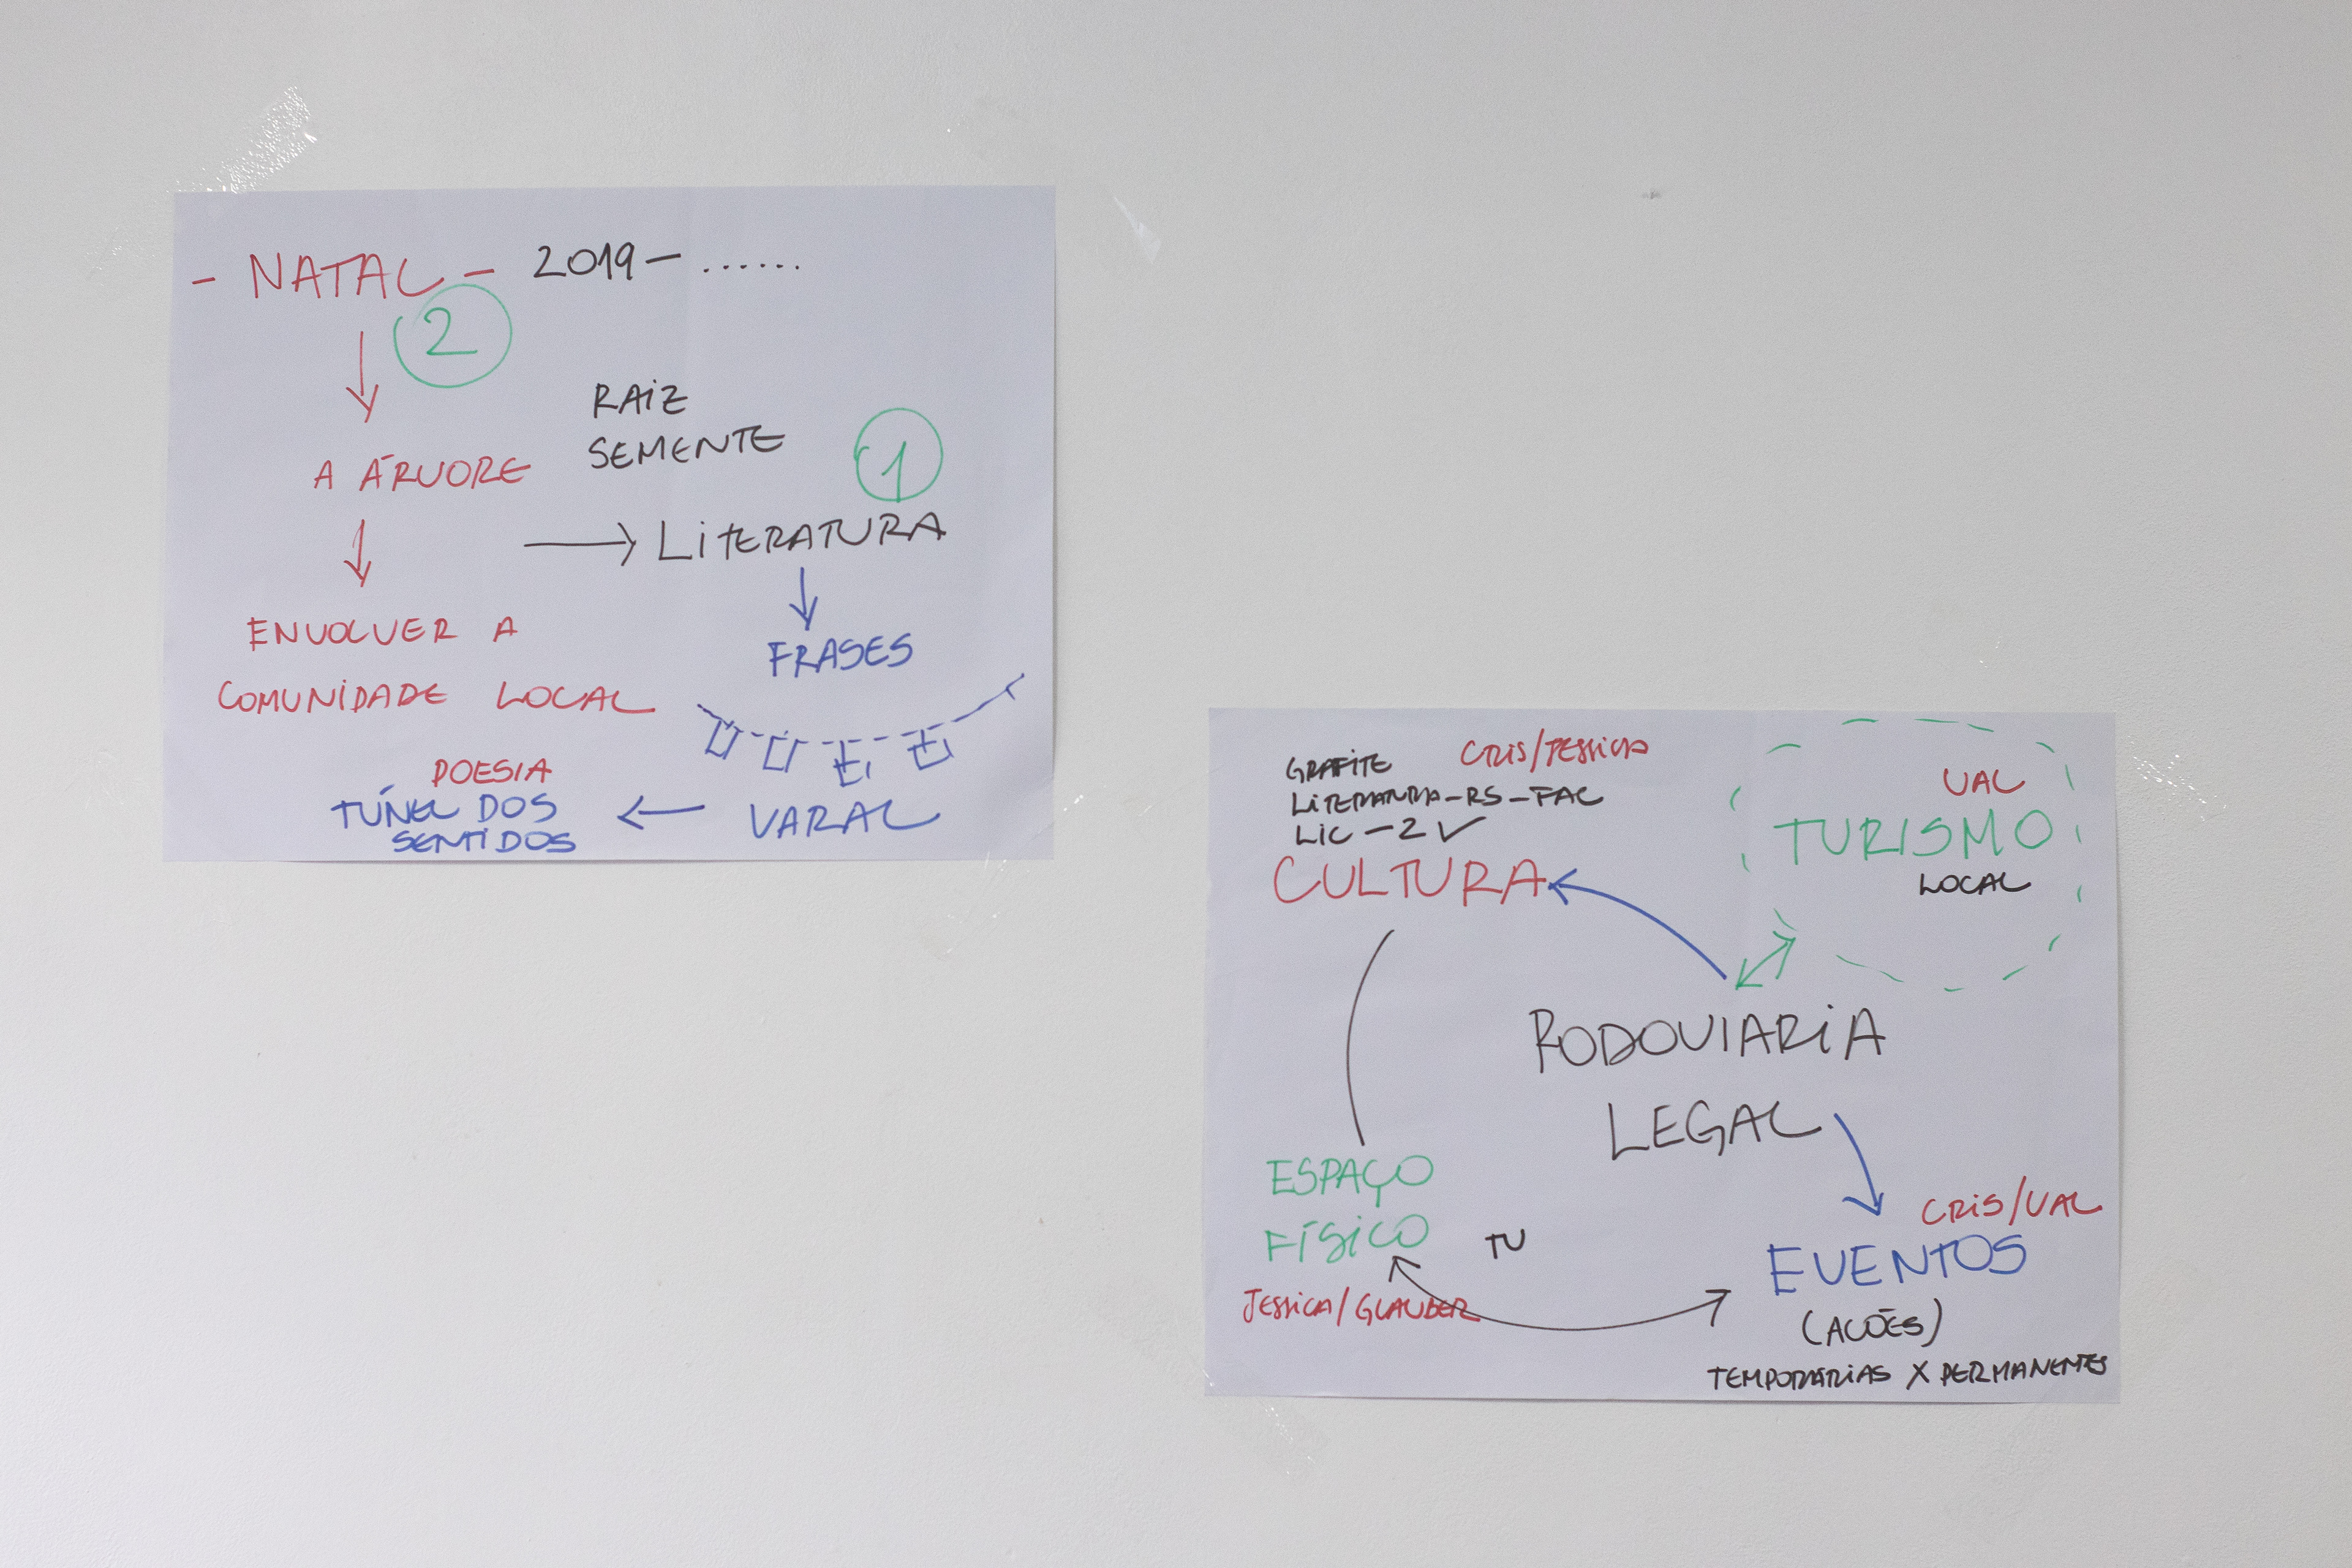 - NATAL - 2019 - ......
2
RAIZ
SEMENTE
1
A ÁRVORE
LITERATURA
FRASES
ENVOLVER A
COMUNIDADE LOCAL
VARAL
POESIA
TÚNEL DOS
SENTIDOS
GRAFITE
CRIS/JESSICA
LITERATURA-RS-FAC
LIC - 2 ✓
CULTURA
VAL
TURISMO
LOCAL
RODOVIARIA
LEGAL
ESPAÇO
FÍSICO
JESSICA/GLAUBER
TU
CRIS/VAL
EVENTOS
(AÇÕES)
TEMPORÁRIAS X PERMANENTES